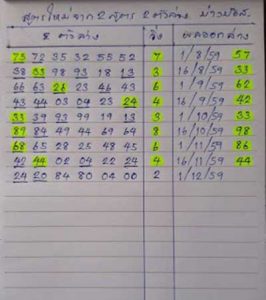 สูตรใหม่จาก 2 สูตร 2 ตัวล่าง
2 ตัวล่าง วิ่ง ผลออกล่าง
73 72 35 32 55 52 7 1/8/59 57
38 33 98 93 18 13 3 16/8/59 33
66 63 26 23 46 43 6 1/9/59 62
43 44 03 04 23 24 4 16/9/59 42
33 39 93 99 19 13 3 1/10/59 33
89 84 49 44 69 64 8 16/10/59 98
68 65 28 25 48 45 6 1/11/59 86
42 44 02 04 22 24 4 16/11/59 44
24 20 84 80 04 00 2 1/12/59